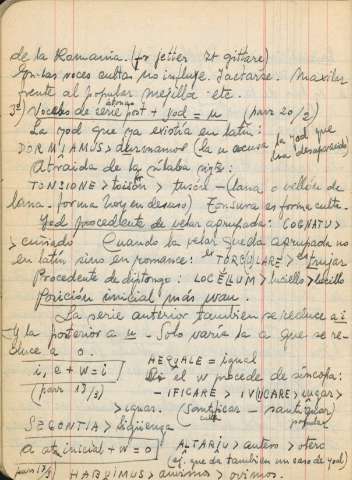 de la Romania. (fr jetter It gittare)
En las voces cultas no influye. Jactarse. Maxilar
frente al popular mejilla etc.
átona
3º) Vocales de serie post + yod = u (parr 20/2)
La yod que ya existía en latín:
DORMIAMUS > durmamos (la u acusa la yod que
ha desaparecido)
Atraida de la sílaba sigte:
TONSIONE > tosión > tusón – (lana o vellón de
lana. forma hoy en desuso) Tonsura es forma culta.
Yod procedente de velar agrupada: COGNATU >
> cuñado Cuando la velar queda agrupada no
en latín sino en romance: es TORCULARE > es trujar
Procedente de diptongo: LOCELLUM > luciello > lucillo
Posición inicial más wau.
La serie anterior tambien se reduce a i
y la posterior a u – Solo varía la a que se re-
duce a o.
AEQUALE = igual
i, e + W = i
Si el W procede de síncopa:
(parr 19/3)
– IFICARE > IVICARE > iugar >
> iguar. (santificar – santiguar)
culta popular
SEGONTIA > Sigüenza
a at. inicial + W = o
ALTARIU > autero > otero
(al. que da tambien un caso de yod)
(parr 17/3)
HABUIMUS > auuimos > ovimos.